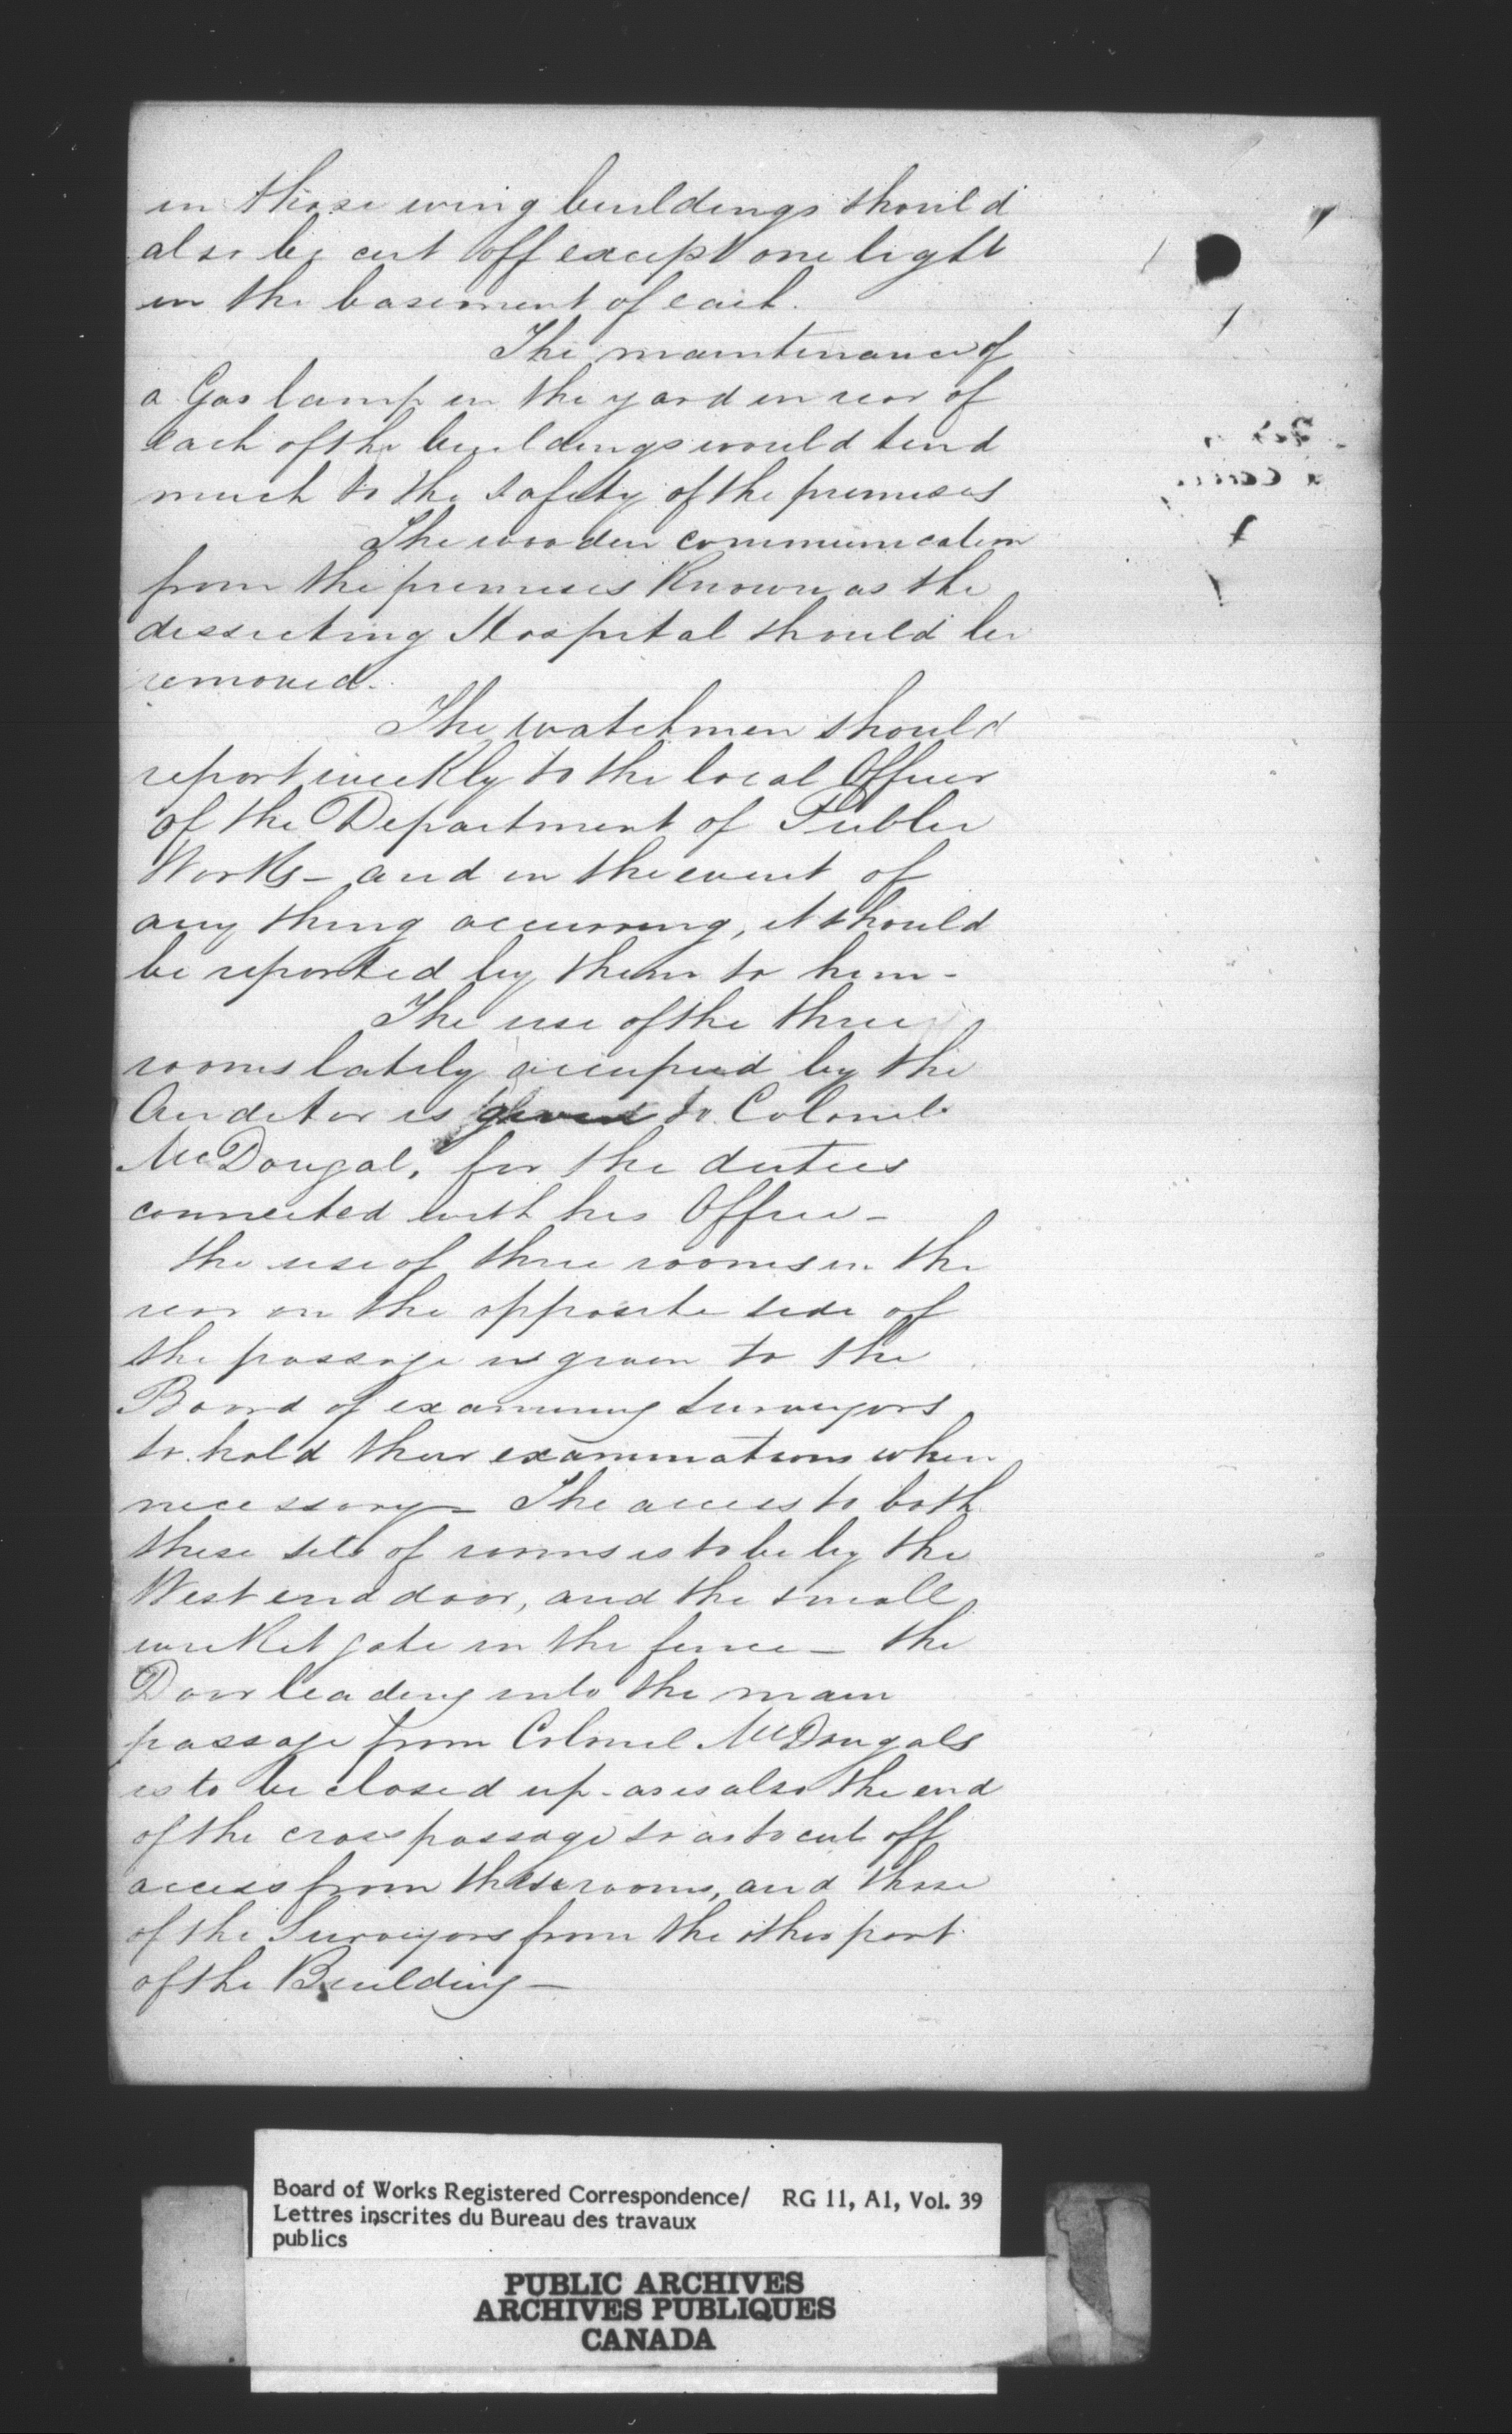 in those wing buildings should
also be cut off except one light
in the basement of each.
The maintenance of
a Gas lamp in the yard in rear of
each of the buildings would tend
much to the safety of the premises
The wooden communication
from the premises known as the
dissecting Hospital should be
removed.
The watchmen should
report weekly to the local Officer
of the Department of Public
Works – and in the event of
any thing occurring, it should
be reported by them to him –
The use of the three
rooms lately occupied by the
Auditor is given to Colonel
McDougal, for the duties
connected with his Office –
the use of three rooms in the
rear on the opposite side of
the passage is given to the
Board of examining Surveyors
to hold their examinations when
necessary – The access to both
these sets of rooms is to be by the
West end door, and the small
wicket gate in the fence – the
Door leading into the main
passage from Colonel McDougals
is to be closed up – as is also the end
of the cross passage so as to cut off
access from these rooms, and those
of the Surveyors from the other part
of the Building –
Board of Works Registered Correspondence/ RG 11, A1, Vol. 39
Lettres inscrites du Bureau des travaux
publics
PUBLIC ARCHIVES
ARCHIVES PUBLIQUES
CANADA